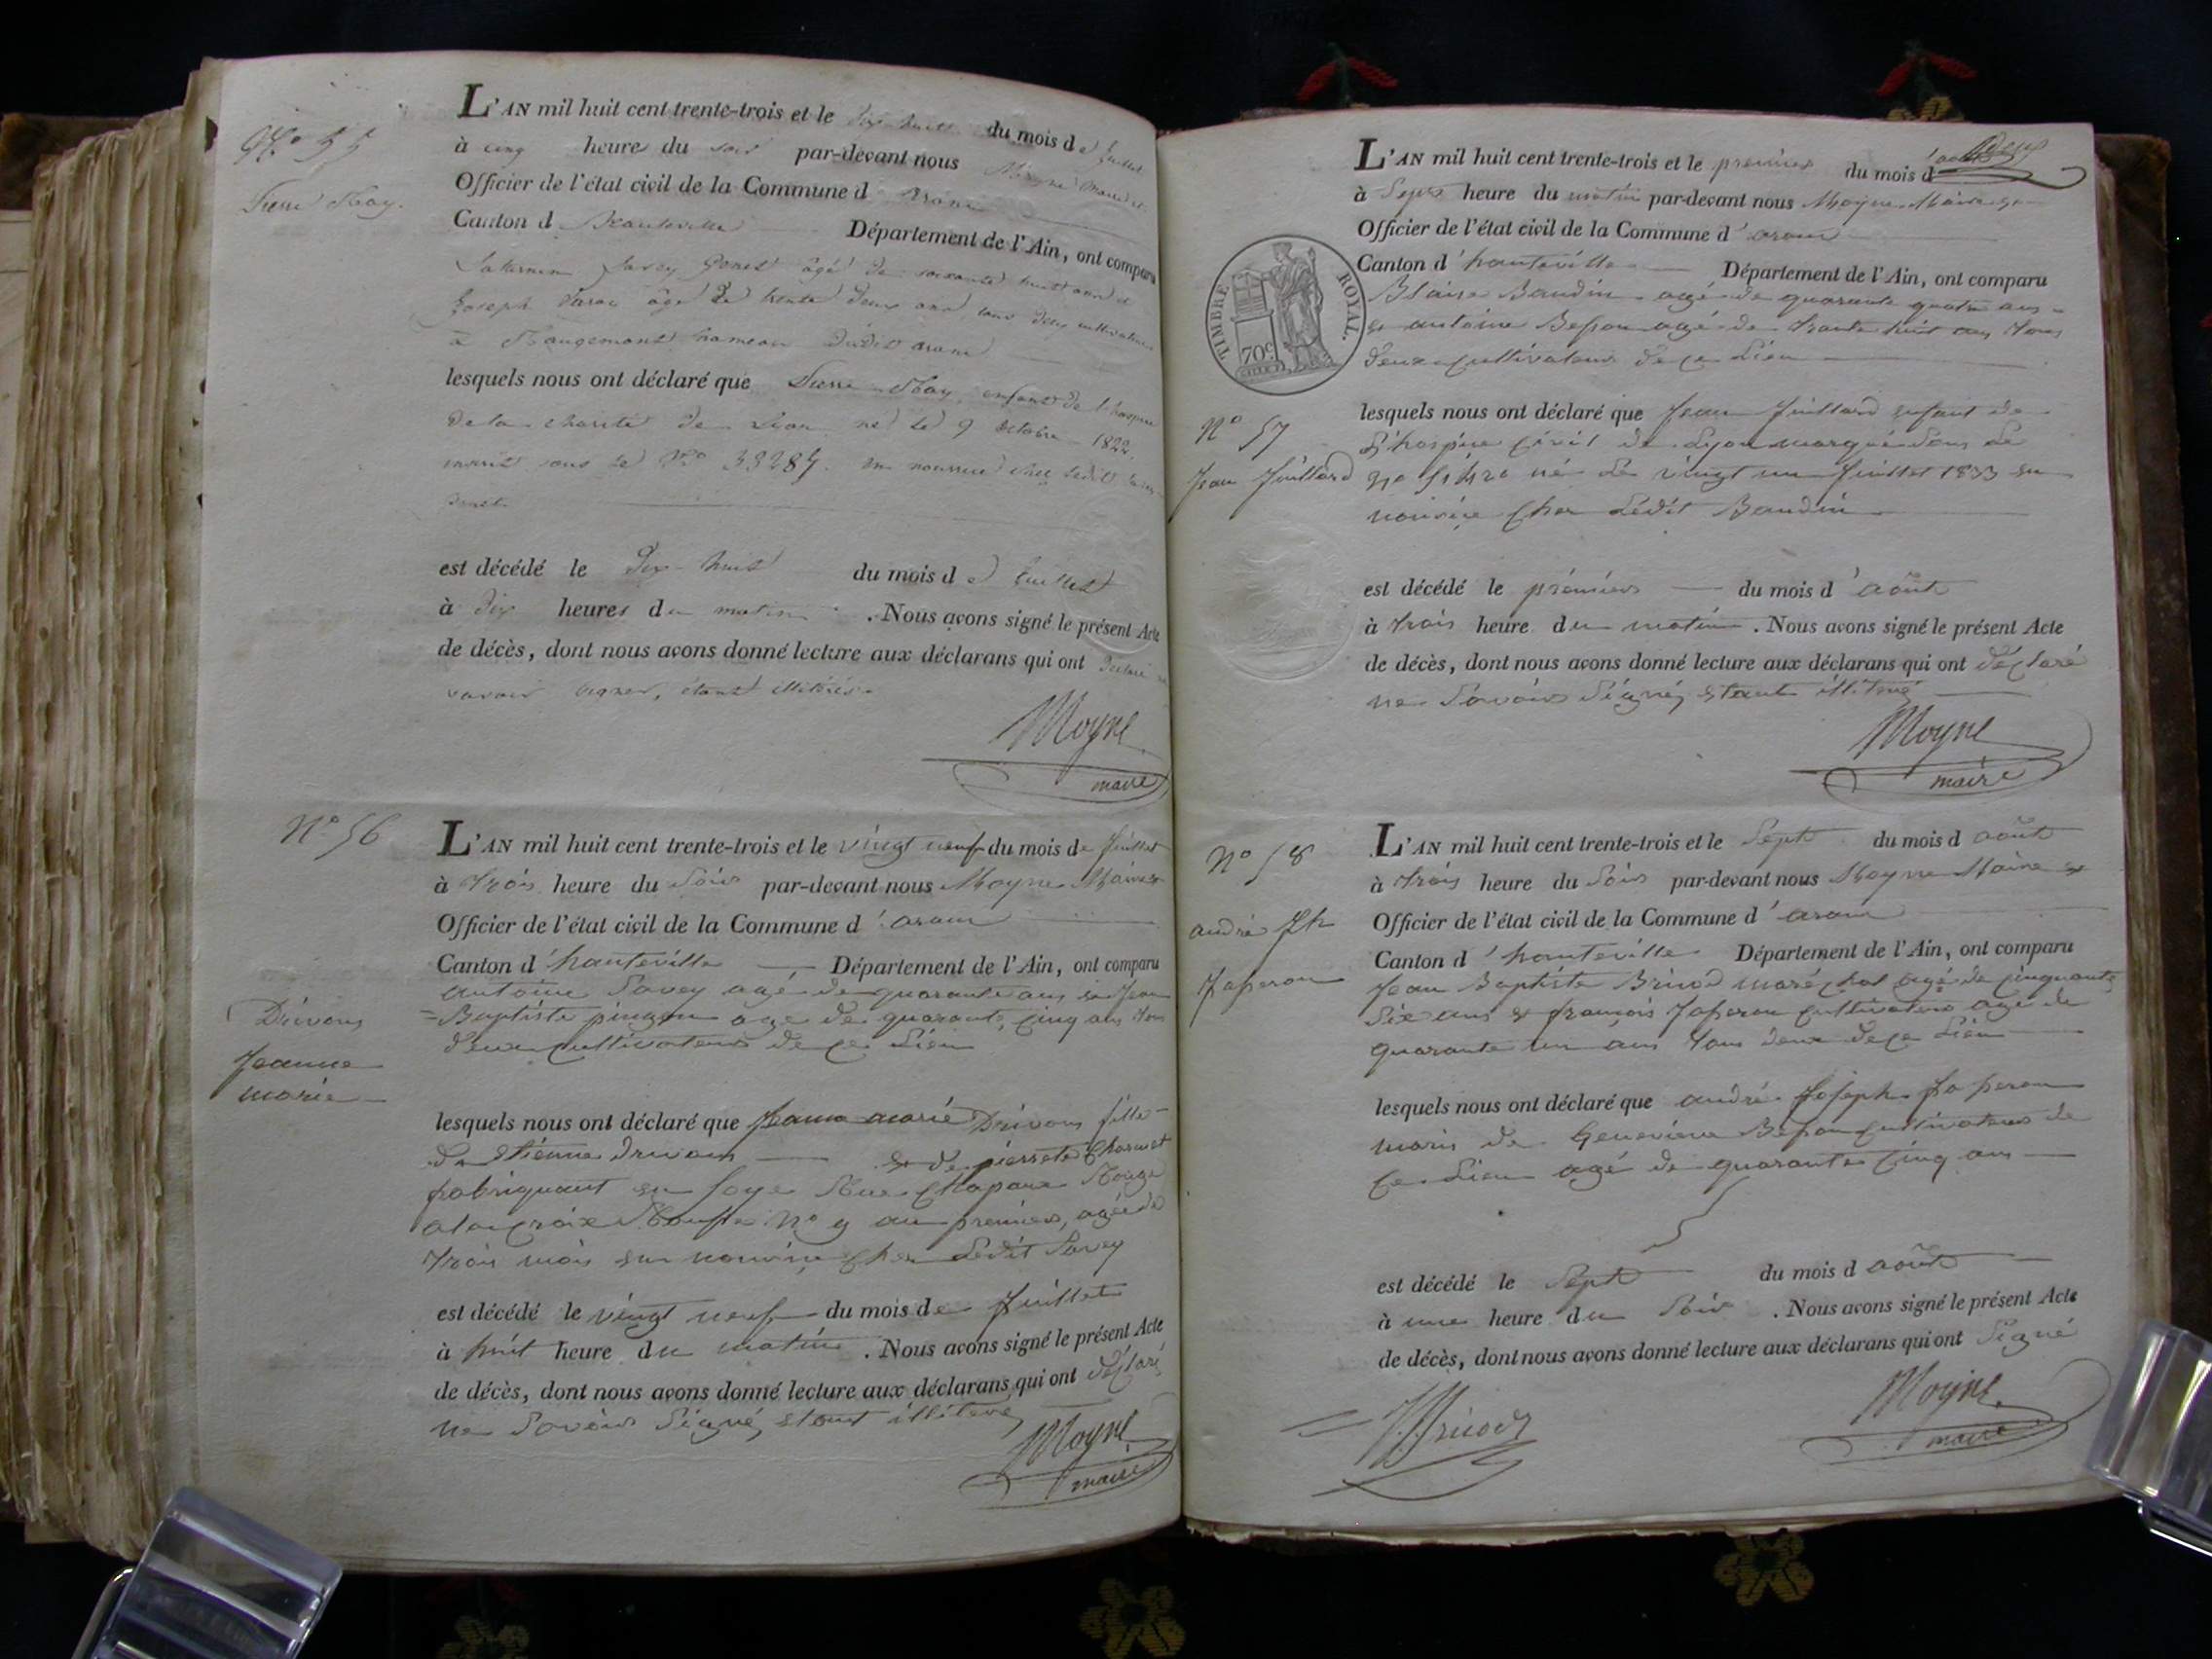 N° 55
Pierre
L'AN mil huit cent trente-trois et le dix huit du mois de Juillet
à cinq heures du soir par-devant nous Moyne
Officier de l'état civil de la Commune d
Canton d Département de l'Ain, ont comparu
Savey âgé de soixante huit ans et
Joseph âgé de trente deux ans tous deux cultivateurs
à Rougemont hameau dudit aranc
lesquels nous ont déclaré que Pierre enfant de l'hospice
de la charité de né le 9 octobre 1822
sous le N° en nourrice chez ledit
est décédé le dix-huit du mois de Juillet
à dix heures du matin . Nous avons signé le présent Acte
de décès, dont nous avons donné lecture aux déclarans qui ont déclaré ne
savoir signer, étant illitérés.
Moyne
maire
N° 56
Drivons
Jeanne
marie
L'AN mil huit cent trente-trois et le vingt neuf du mois de Juillet
à trois heure du soir par-devant nous Moyne Maire et
Officier de l'état civil de la Commune d'aranc
Canton d'hauteville Département de l'Ain, ont comparu
antoine Savey agé de quarante ans et Jean
=Baptiste pingon age de quarante cinq ans tous
deux cultivateurs de ce Lieu
lesquels nous ont déclaré que Jeanne marie Drivons fille
de Etienne drivons et de pierrete Charvet
fabriquant en soye Rue Chapeau Rouge
a la croix Rousse N° 9 au premier, agée de
trois mois en nourrice chez Ledit Savey
est décédé le vingt neuf du mois de Juillet
à huit heure du matin . Nous avons signé le présent Acte
de décès, dont nous avons donné lecture aux déclarans qui ont déclaré
ne Savoir Signé, etant illiteré
Moyne
maire
L'AN mil huit cent trente-trois et le premier du mois d'aout
à Sept heure du matin par-devant nous Moyne Maire et
Officier de l'état civil de la Commune d'aranc
Canton d'hauteville Département de l'Ain, ont comparu
Blaise Baudin agé de quarante quatre ans
et antoine Besson agé de trante huit ans tous
deux cultivateurs de ce Lieu
TIMBRE ROYAL.
70c
N° 57
Jean Juillard
lesquels nous ont déclaré que Jean Juillard enfant de
L'hospice Civil de Lyon marqué Sous Le
N° né Le vingt un Juillet 1833 en
nourice chez Ledit Baudin
est décédé le premier du mois d'août
à trois heure du matin . Nous avons signé le présent Acte
de décès, dont nous avons donné lecture aux déclarans qui ont déclaré
ne Savoir Signé, etant illiteré
Moyne
maire
N° 58
andré Jh
Japeron
L'AN mil huit cent trente-trois et le Sept du mois d août
à trois heure du Soir par-devant nous Moyne Maire et
Officier de l'état civil de la Commune d'aranc
Canton d'hauteville Département de l'Ain, ont comparu
Jean Baptiste Brucod maréchal agé de cinquante
Six ans et françois Japeron cultivateur agé de
quarante un ans tous deux de ce Lieu
lesquels nous ont déclaré que andré Joseph Japeron
maris de Genevieve Besson cultivateur de
ce Lieu agé de quarante cinq ans
est décédé le Sept du mois d août
à une heure du Soir . Nous avons signé le présent Acte
de décès, dont nous avons donné lecture aux déclarans qui ont Signé
Moyne
maire